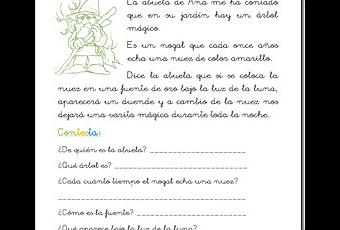 La abuela de Ana me ha contado
que en su jardín hay un árbol
mágico.
Es un nogal que cada once años
echa una nuez de color amarillo.
Dice la abuela que si se coloca la
nuez en una fuente de oro bajo la luz de la luna,
aparecerá un duende y a cambio de la nuez nos
dejará una varita mágica durante toda la noche.
Contesta:
¿De quién es la abuela? ____________________
¿Qué árbol es? ____________________________
¿Cada cuánto tiempo el nogal echa una nuez?
________________________________________
¿Cómo es la fuente? _______________________
¿Qué aparece bajo la luz de la luna?